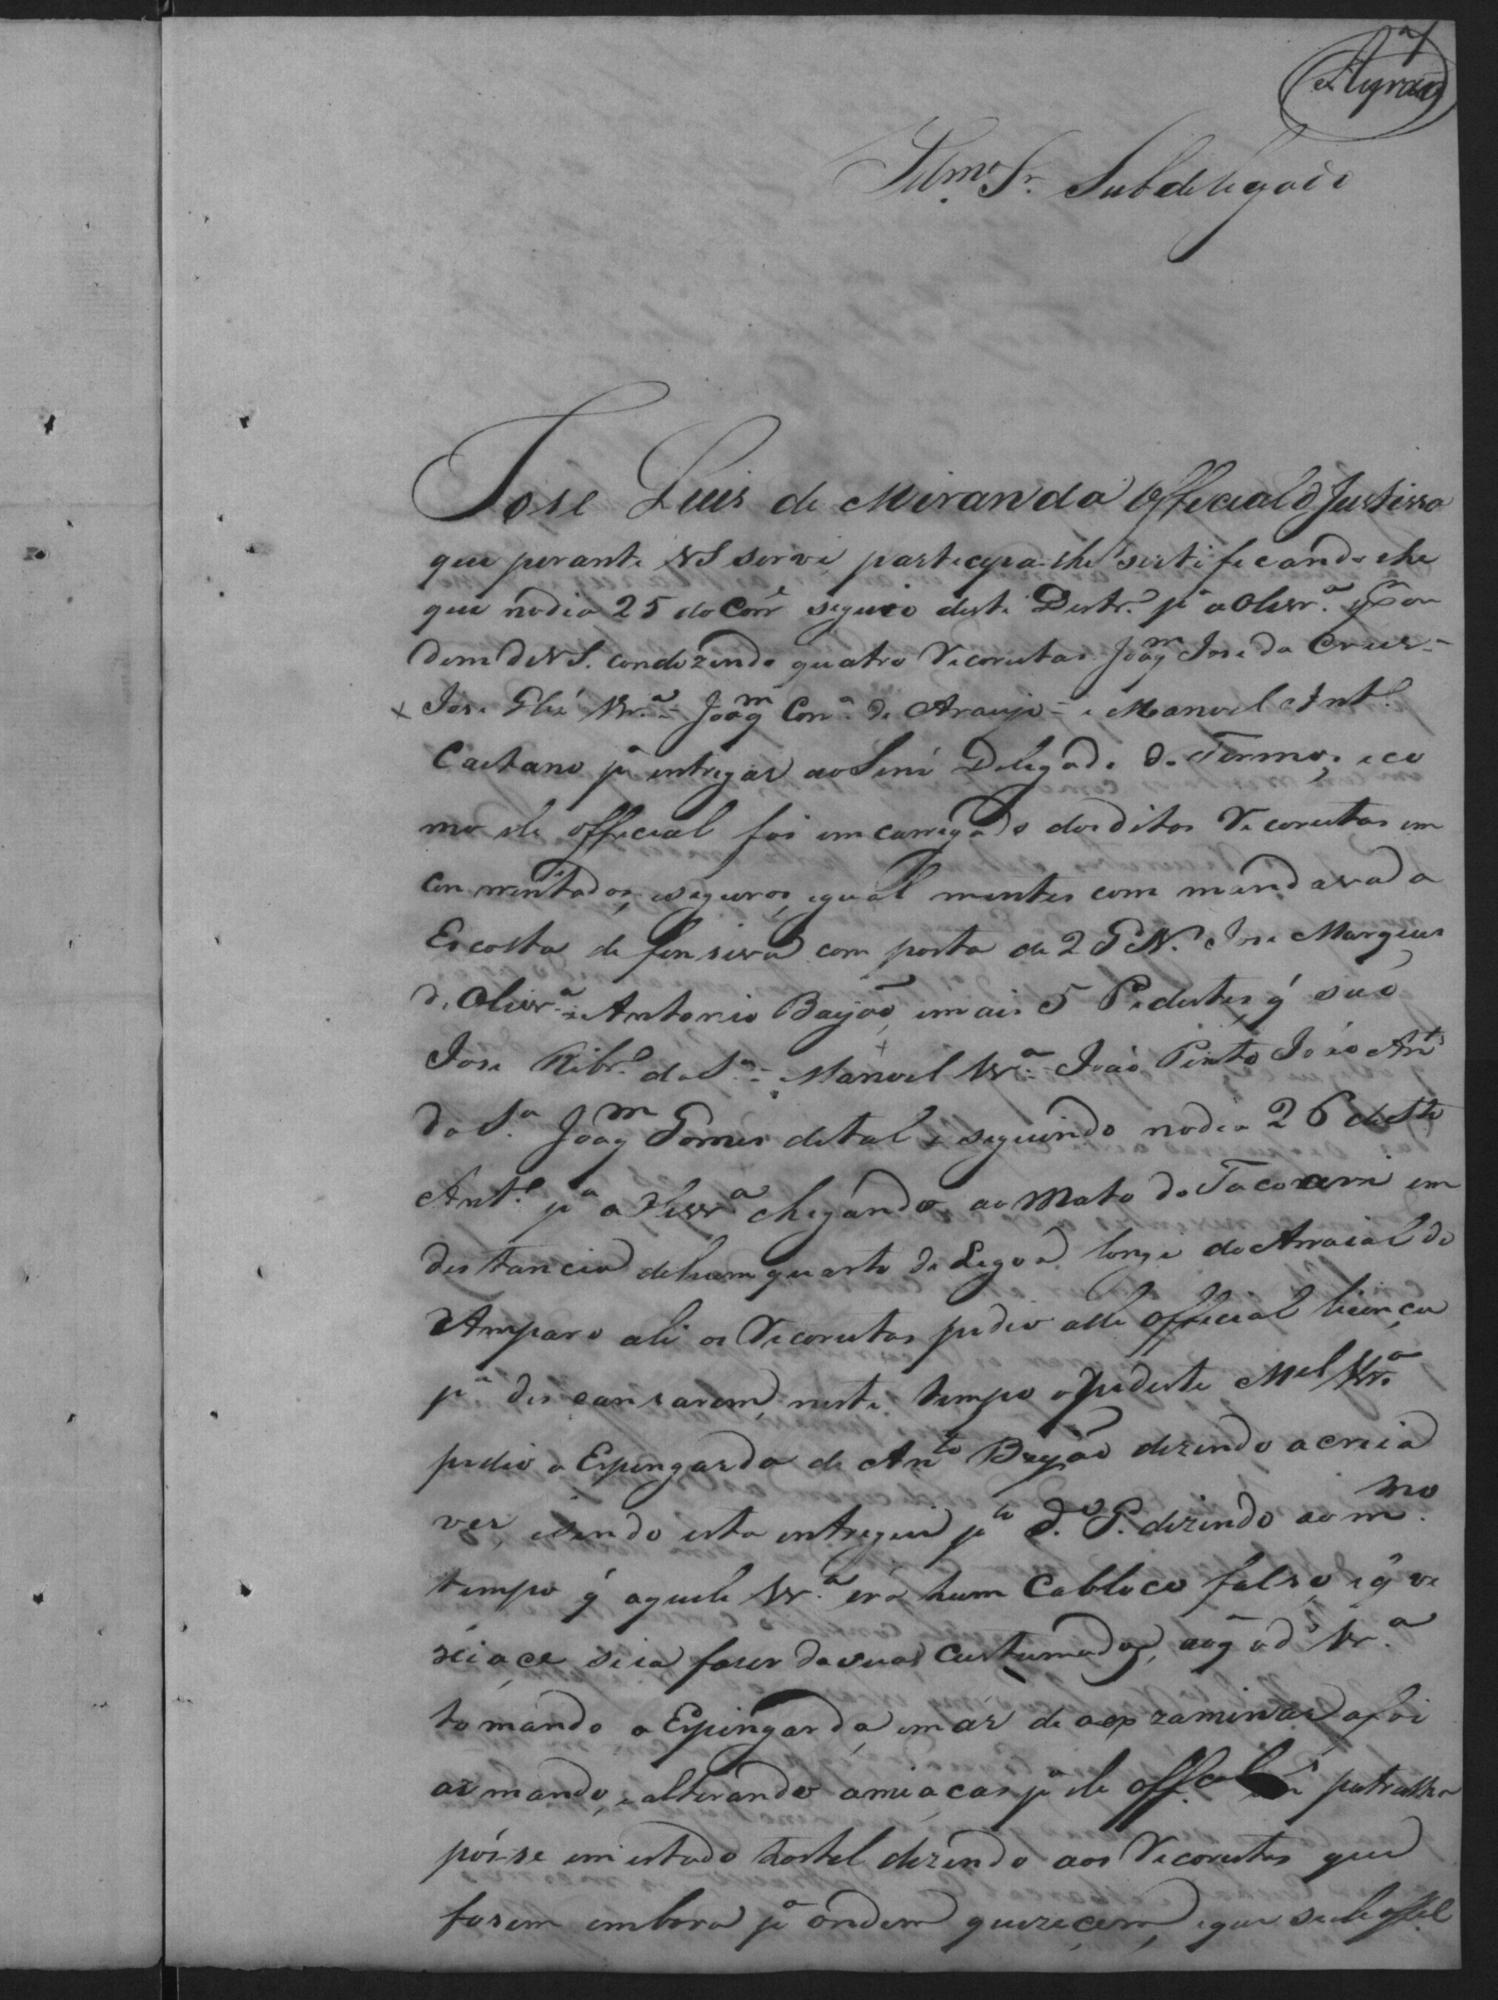 Illmº Sr. Subdelegado
Jose Luis de Miranda Official d Justissa
que perante VS serve, partecipa-lhe sertificando lhe
que nodia 25 do Corrẽ seguio deste Destrº pª a Olivrª por or
dem de VS. condozindo quatro Recorutas Joaqm Jose da Crus =
x Jose Vrª = Joaqm Conª de Araujo = e Manoel Antº
Caetano pª entregar ao Senr Delegado do Termo, e co
mo ele official foi emcarregado dos ditos Recorutas em
comrentados, eseguros, igual mentes com mandava da
Escolta defensiva com posta de 2 GN. Jose Marques
d. Olivrª = Antonio Bayão, emais 5 Pedestes, q̃ são
Jose Ribrº da Sª = Manoel Vrª = João Pinto João Antº
da Sª Joaqm Gomes de tal, e seguindo nodia 26 deste
Antº pª a Olivrª chegando ao Mato do em
destancia dehum quarto de Legoa longe do Arraial do
Amparo ali os Recorutas pedio alle official licença
pª descansarem, neste tempo o pedeste Mel Vrª
pedio a Espingarda de Antº Bayão dizendo a creia
ver, isendo esta entregue pº d.º G. dizendo ao mmo
tempo q̃ aquele Vrª era hum Cabloco falso, e q̃ re
seiace seia faser dasuas Custumadas, aoq̃ o dº Vrª
tomando a Espingarda, em ar de aexzaminar, a foi
armando, e alterando ameaças pª ele offcal e patrulha
pôs-se em estado hostel dizendo aos Recorutas que
fosem embora pª ondem quezecem, eque se ele offel